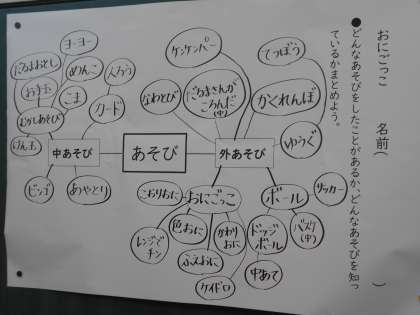 おにごっこ　　名前（　　　　　　）
●どんなあそびをしたことがあるか、どんなあそびを知っ
ているかまとめよう。
あそび
中あそび
外あそび
ヨーヨー
だるまおとし
めんこ
お手玉
こま
むかしあそび
けん玉
人生ろう
カード
ビンゴ
あやとり
ケンケンパー
なわとび
だるまさんが
ころんだ
(中)
てつぼう
かくれんぼ
ゆうぐ
おにごっこ
こおりおに
色おに
レンジでチン
ふえおに
かわりおに
ケイドロ
ボール
サッカー
ドッジボール
バスケ
(中)
中あて